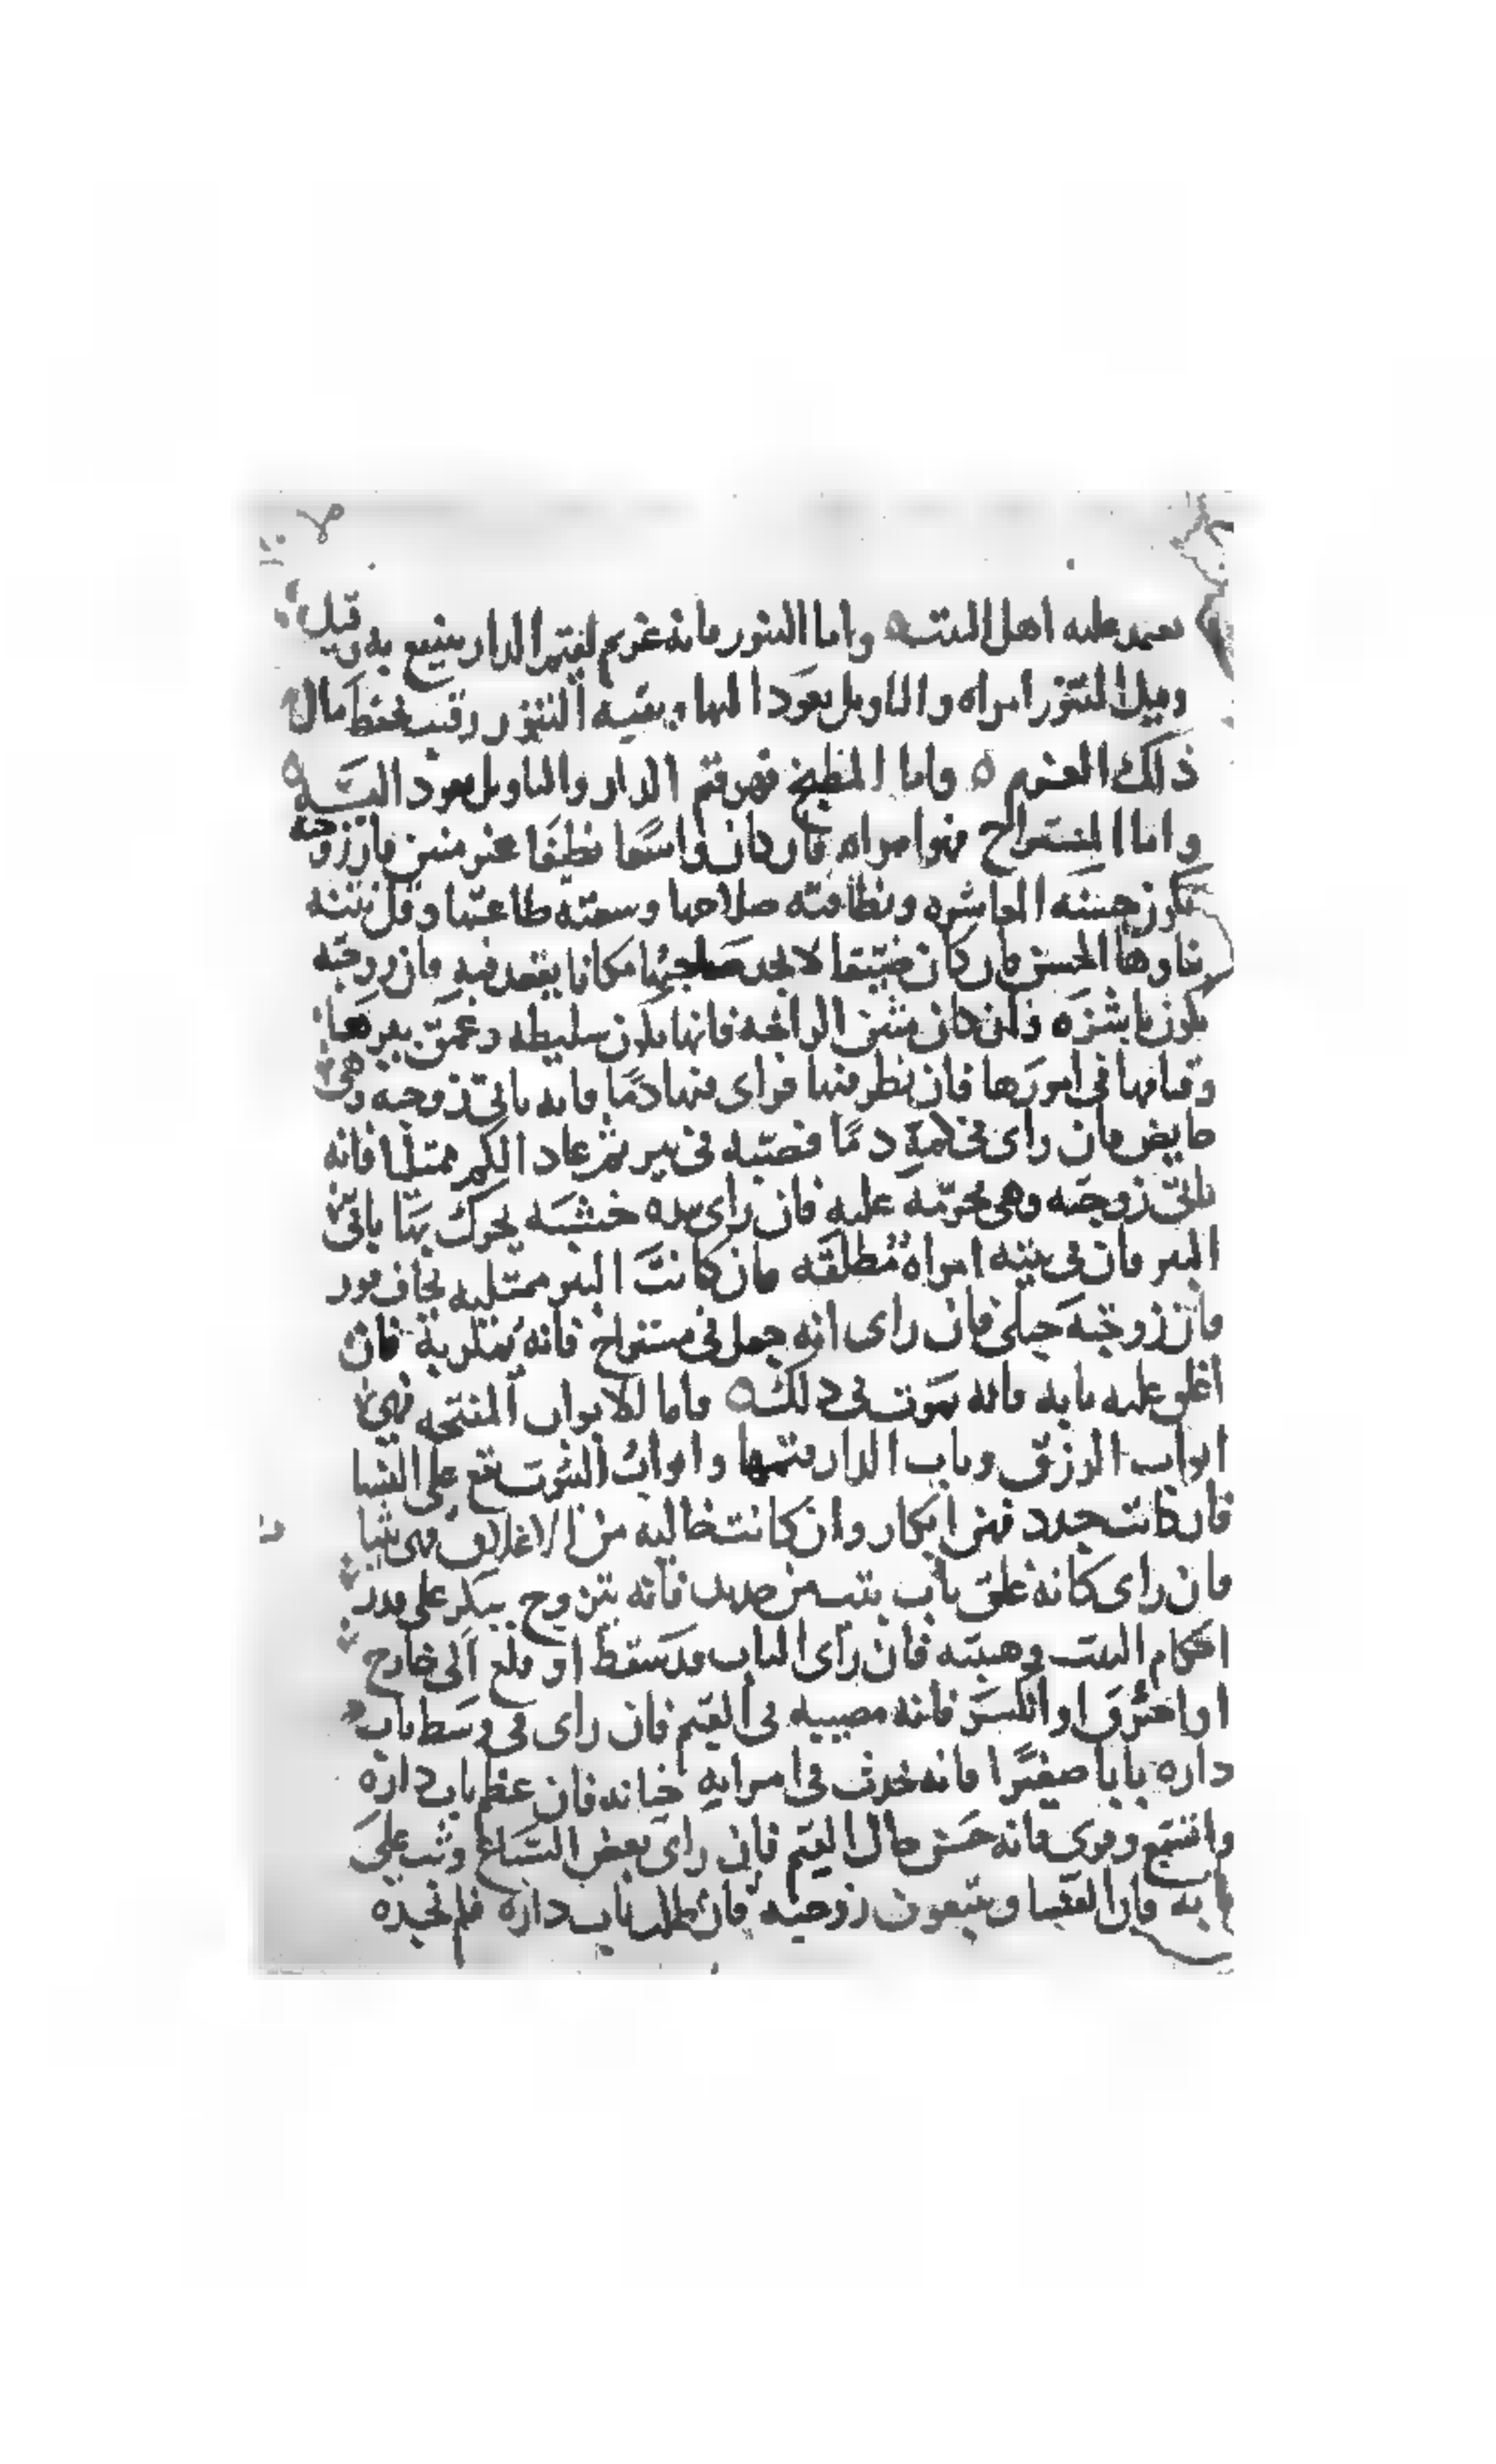 يعتمد عليه اهل البيت ه واما التنور فانه غريم لقيم الدار ينتفع به وقيل
وقيل التنور امراه والتاويل يعود اليها وبقيه التنور رقيب يحفظ مال
ذلك الغريم ه واما المطبخ فهو قيم الدار والتاويل يعود اليه ه
واما المستراح فهو امراه فان كان واسعا نظيفا غير منتن فان زوجته
تكون حسنه المعاشره ونظافته صلاحها وسعته طاعتها وقل نتنه
فان كان ضيقا لا يجد صاحبها مكانا يقعد فيه فان زوجته
تكون ناشزه وان كان منتن الرائحه فانها تكون سليطه وعمق بيرها
وقيامها في امورها فان نظر فيها فراى فيها دما فانه ياتي زوجته وهي
حايض فان راى في دما فصبه في بير ثم عاد ممتليا فانه
ياتي زوجته وهي محرمه عليه فان راى بيده خشبه يحرك بها باقي
البير فان في بيته امراه مطلقه فان كانت البير ممتليه يخاف فور
فان زوجته حبلى فان راى انه جعل في مستراح فانه يمكر به فان
اغلق عليه بابه فانه يموت في ذلك ه واما الابواب المفتحه فهي
ابواب الرزق وباب الدار قيمها وابواب البيوت تقع على النسا
فان كانت جدد فهن ابكار وان كانت خاليه من الاغلاق فهي ثيبا
فان راى كانه غلق باب بيت من حديد فانه يتزوج ببكر على قدر
احكام البيت وهيبته فان راى الباب قد سقط او قلع الى خارج
او احترق او انكسر فانه مصيبه في القيم فان راى في وسط باب
داره بابا صغيرا فانه يحدث في امراته خيانه فان عظم باب داره
واتسع وقوي فانه حسن حال القيم فان راى بعض السباع وثب على
به فان الفسا ويتبعون زوجته فان طلب باب داره فلم يجده